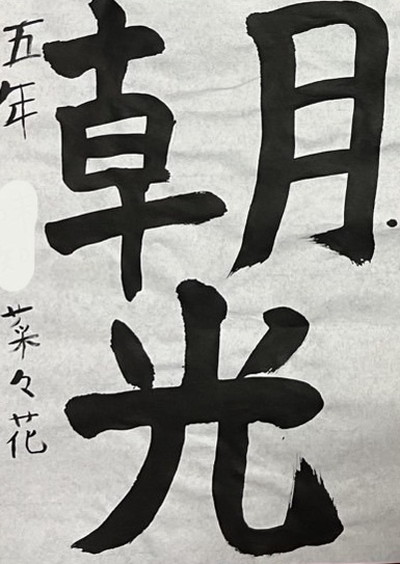 朝光
五年 菜々花